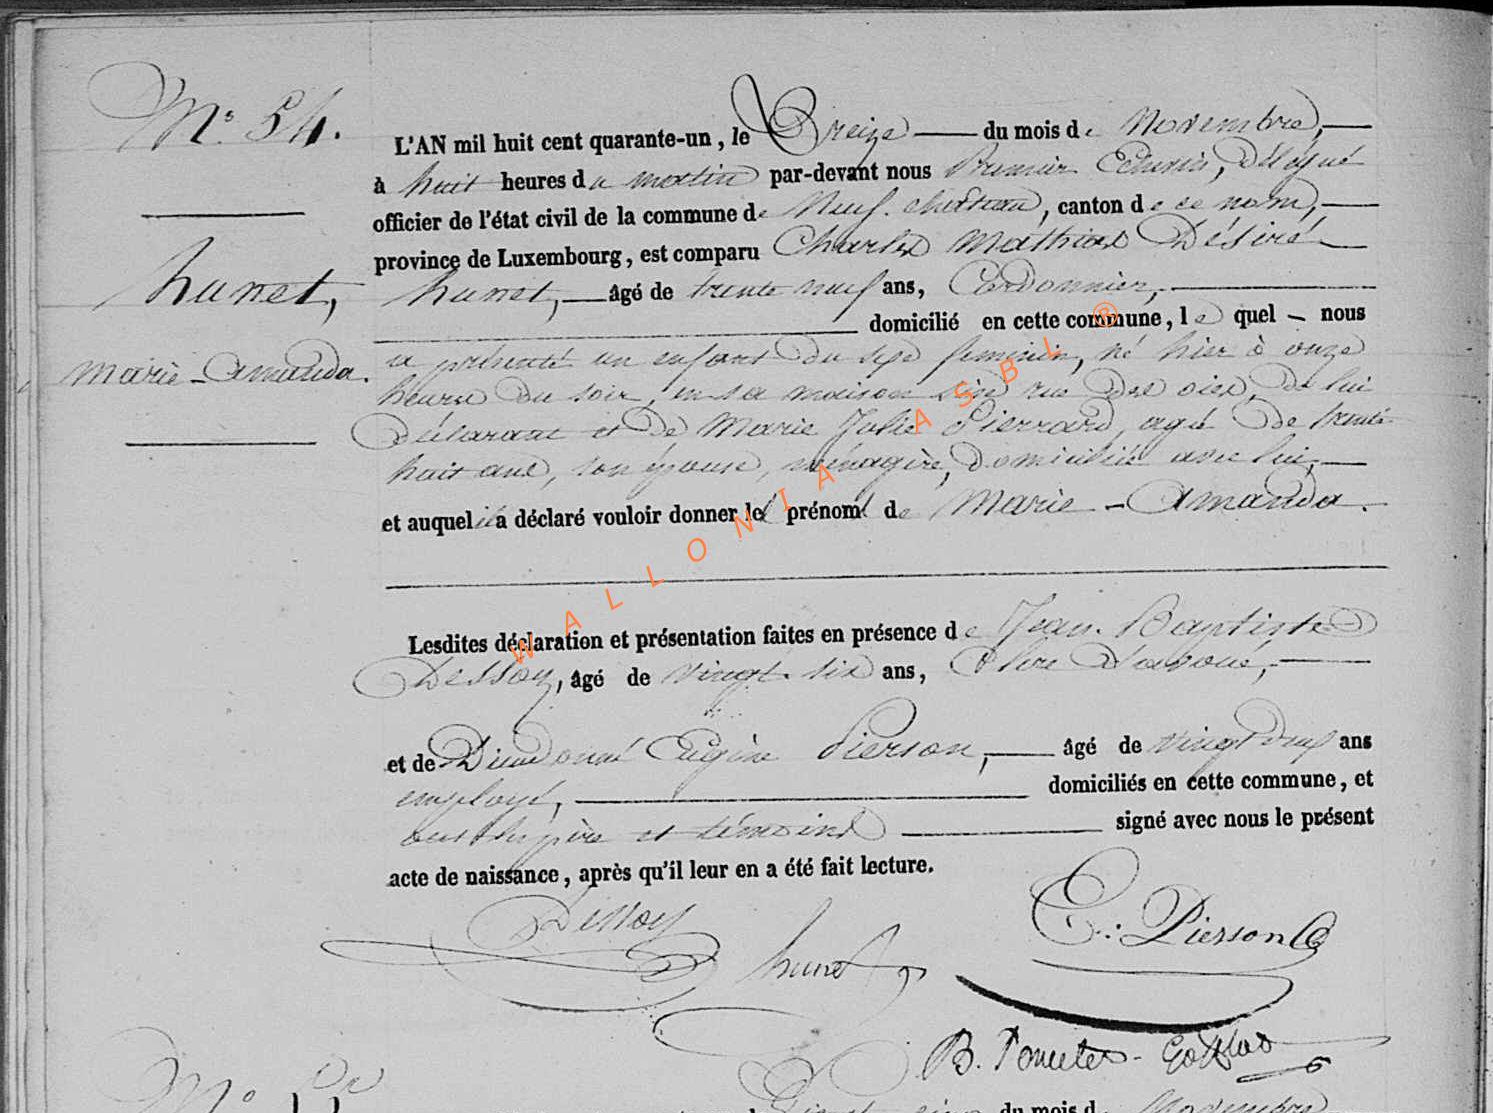 N° 54.
L'AN mil huit cent quarante-un, le Treize du mois de Novembre,
à huit heures du matin par-devant nous Premier Echevin, Délégué
officier de l'état civil de la commune de Neufchâteau, canton de ce nom,
province de Luxembourg, est comparu Charles Mathias Désiré
hunet,
hunet, âgé de trente neuf ans, Cordonnier,
domicilié en cette commune, lequel nous
Marie-Amanda.
a présenté un enfant du sexe feminin, né hier à onze
heures du soir, en sa maison sise rue des oies, de lui
Déclarant et de Marie Julie Pierrard, agée de trente
huit ans, son épouse, ménagère, domiciliée avec lui,
et auquel il a déclaré vouloir donner les prénoms de Marie-Amanda.
Lesdites déclaration et présentation faites en présence de Jean-Baptiste
Dessoy, âgé de vingt-six ans, Clerc d'avoué,
et de Dieudonné Eugène Pierson, âgé de vingt deux ans
employé, domiciliés en cette commune, et
ont les père et témoins signé avec nous le présent
acte de naissance, après qu'il leur en a été fait lecture.
Dessoy
hunet
E. Pierson
B.
N° 55
du mois de Novembre
WALLONIA ASBL ®